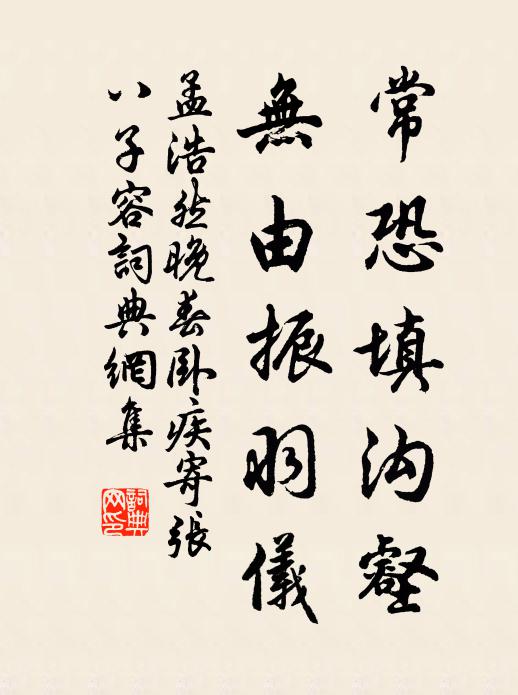 常恐填沟壑
無由振羽儀
孟浩然晚春卧疾寄張
八子容詞典網集
詞典
网印